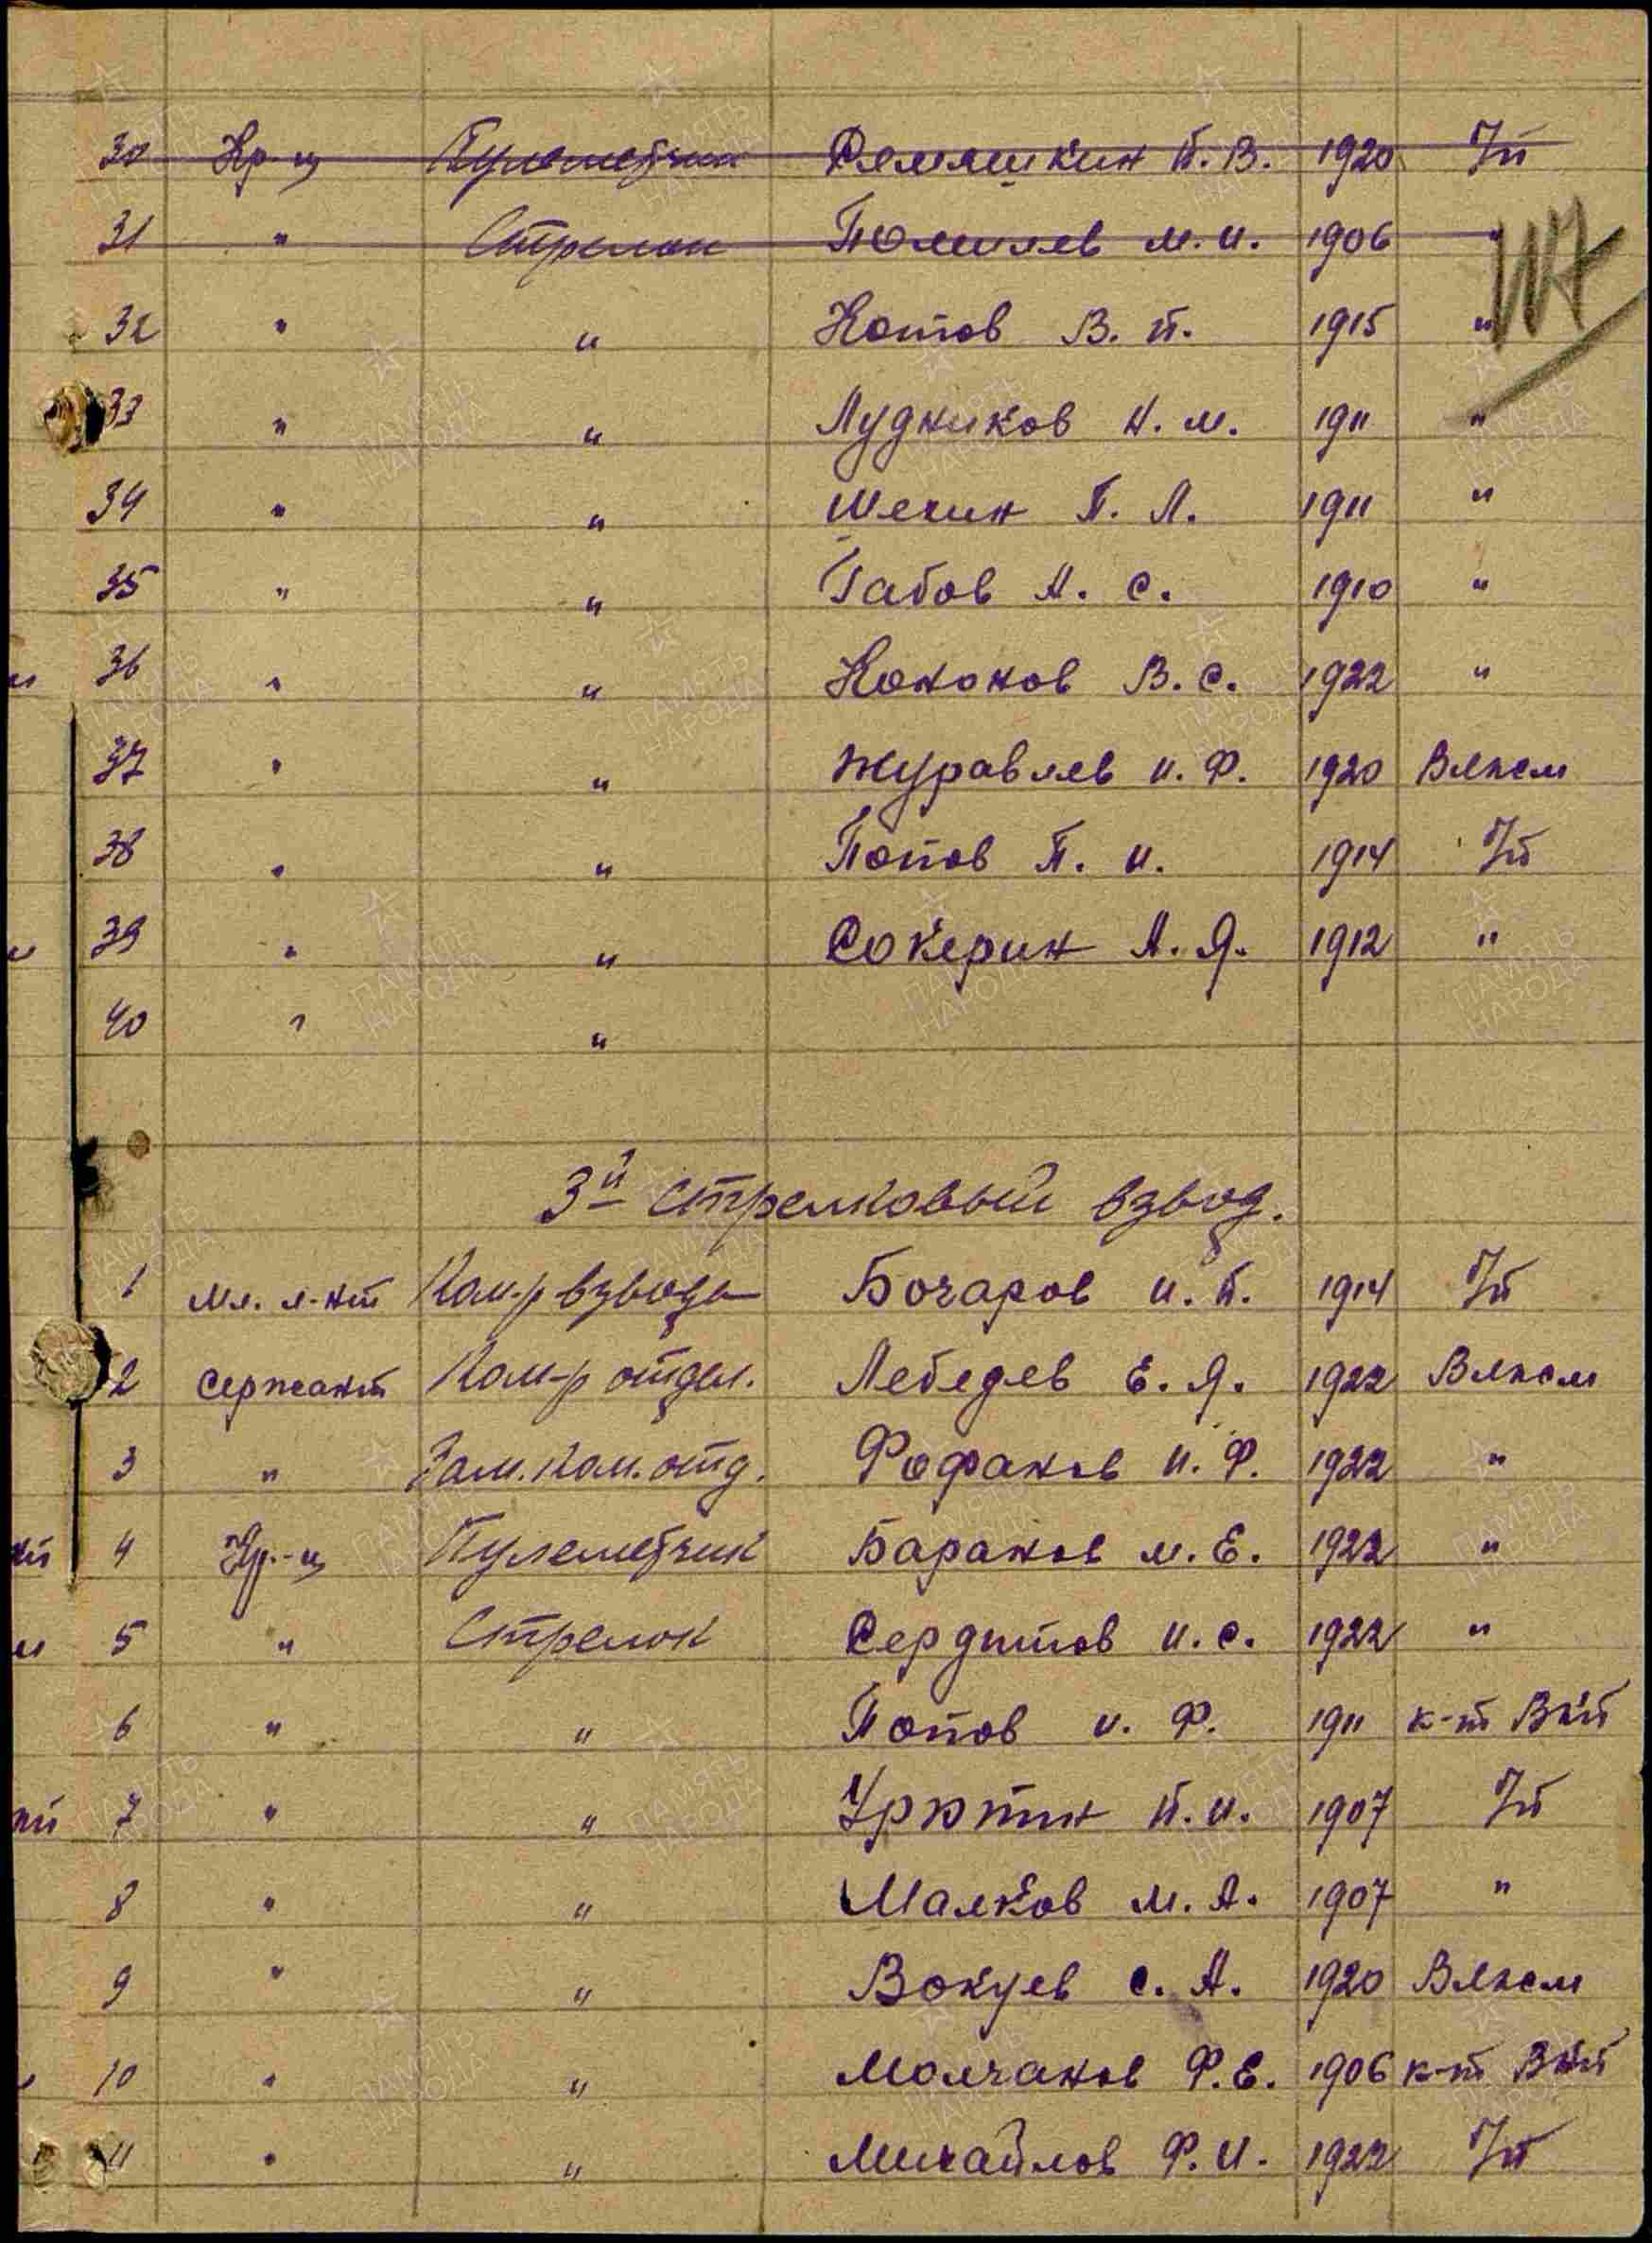 30 Кр-ц Пулеметчик Семяшкин П.В. 1920 б/п
31 " Стрелок М.И. 1906 "
32 " " Котов В.П. 1915 "
33 " " Лудников Н.М. 1911 "
34 " " П.Л. 1911 "
35 " " Габов А.С. 1910 "
36 " " Кононов В.С. 1922 "
37 " " Журавлев И.Ф. 1920 Влксм
38 " " Попов П.И. 1914 б/п
39 " " Сокерин А.Я. 1912 "
40 " "
3й стрелковый взвод.
1 Мл. л-нт Ком-р взвода Бочаров И.П. 1914 б/п
2 Сержант Ком-р отдел. Лебедев Е.Я. 1922 Влксм
3 " Зам. ком. отд. Фофанов И.Ф. 1922 "
4 Кр-ц Пулеметчик Баранов М.Е. 1922 "
5 " Стрелок Сердитов И.С. 1922 "
6 " " Попов И.Ф. 1911 к-т Вкп
7 " " П.И. 1907 б/п
8 " " Малков М.А. 1907 "
9 " " Вокуев С.А. 1920 Влксм
10 " " Молчанов Ф.Е. 1906 к-т Вкп
11 " " Михайлов Ф.И. 1922 б/п
ПАМЯТЬ НАРОДА